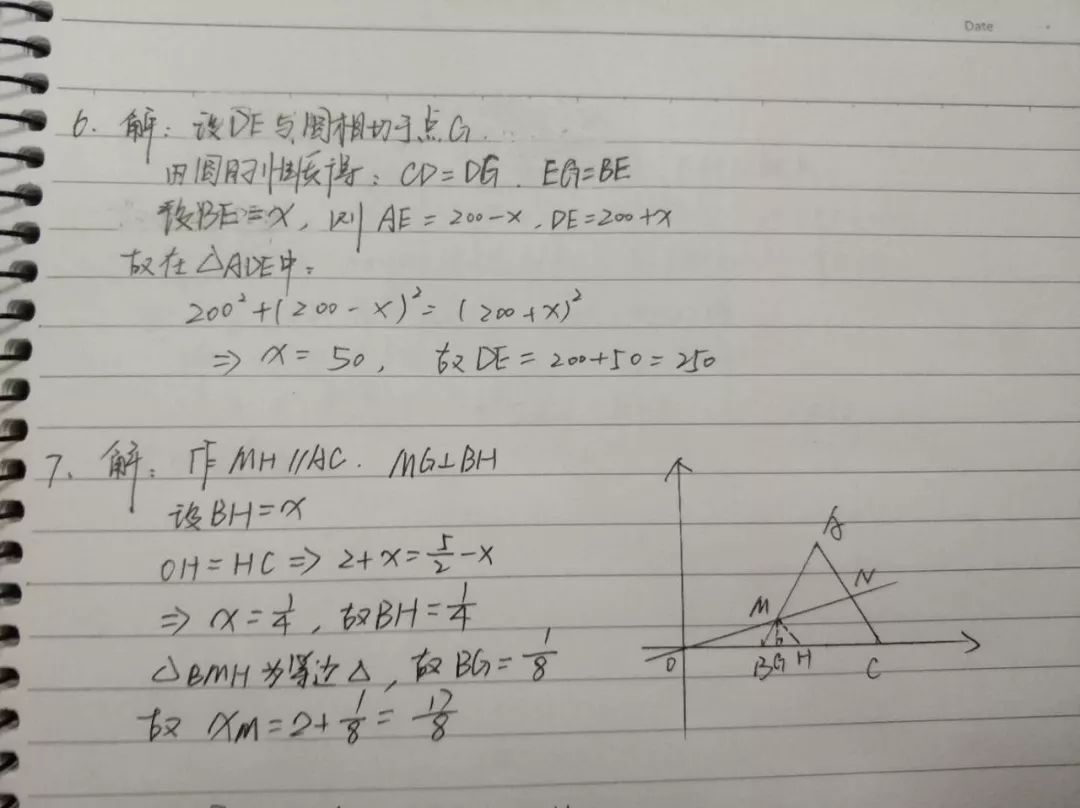 Date
6. 解：设DE与圆相切于点G.
由圆的性质得：CD=DG. EG=BE
设BE=x, 则AE=200-x. DE=200+x
故在△ADE中：
200²+(200-x)²=(200+x)²
⇒ x=50, 故DE=200+50=250
7. 解：作MH//AC. MG⊥BH
设BH=x
OH=HC ⇒ 2+x=5/2-x
⇒ x=1/4, 故BH=1/4
△BMH为等边△, 故BG=1/8
故 xM=2+1/8=17/8
A
N
M
O
B
G
H
C